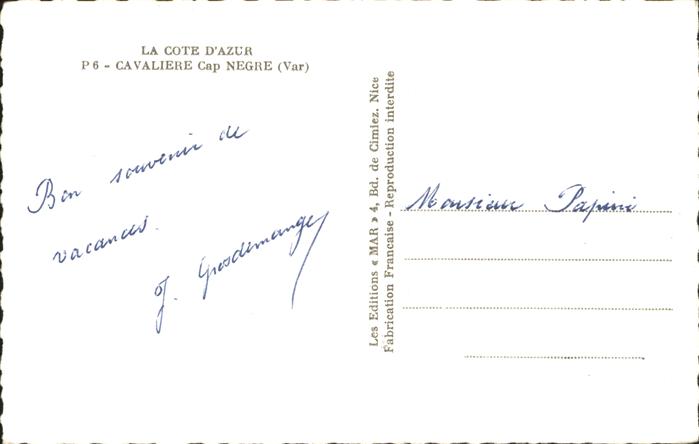 LA COTE D'AZUR
P 6 - CAVALIERE Cap NEGRE (Var)
Bon souvenir de
vacances.
J. Grosdemange
Les Editions « MAR » 4, Bd. de Cimiez. Nice
Fabrication Francaise - Reproduction interdite
Monsieur Papini